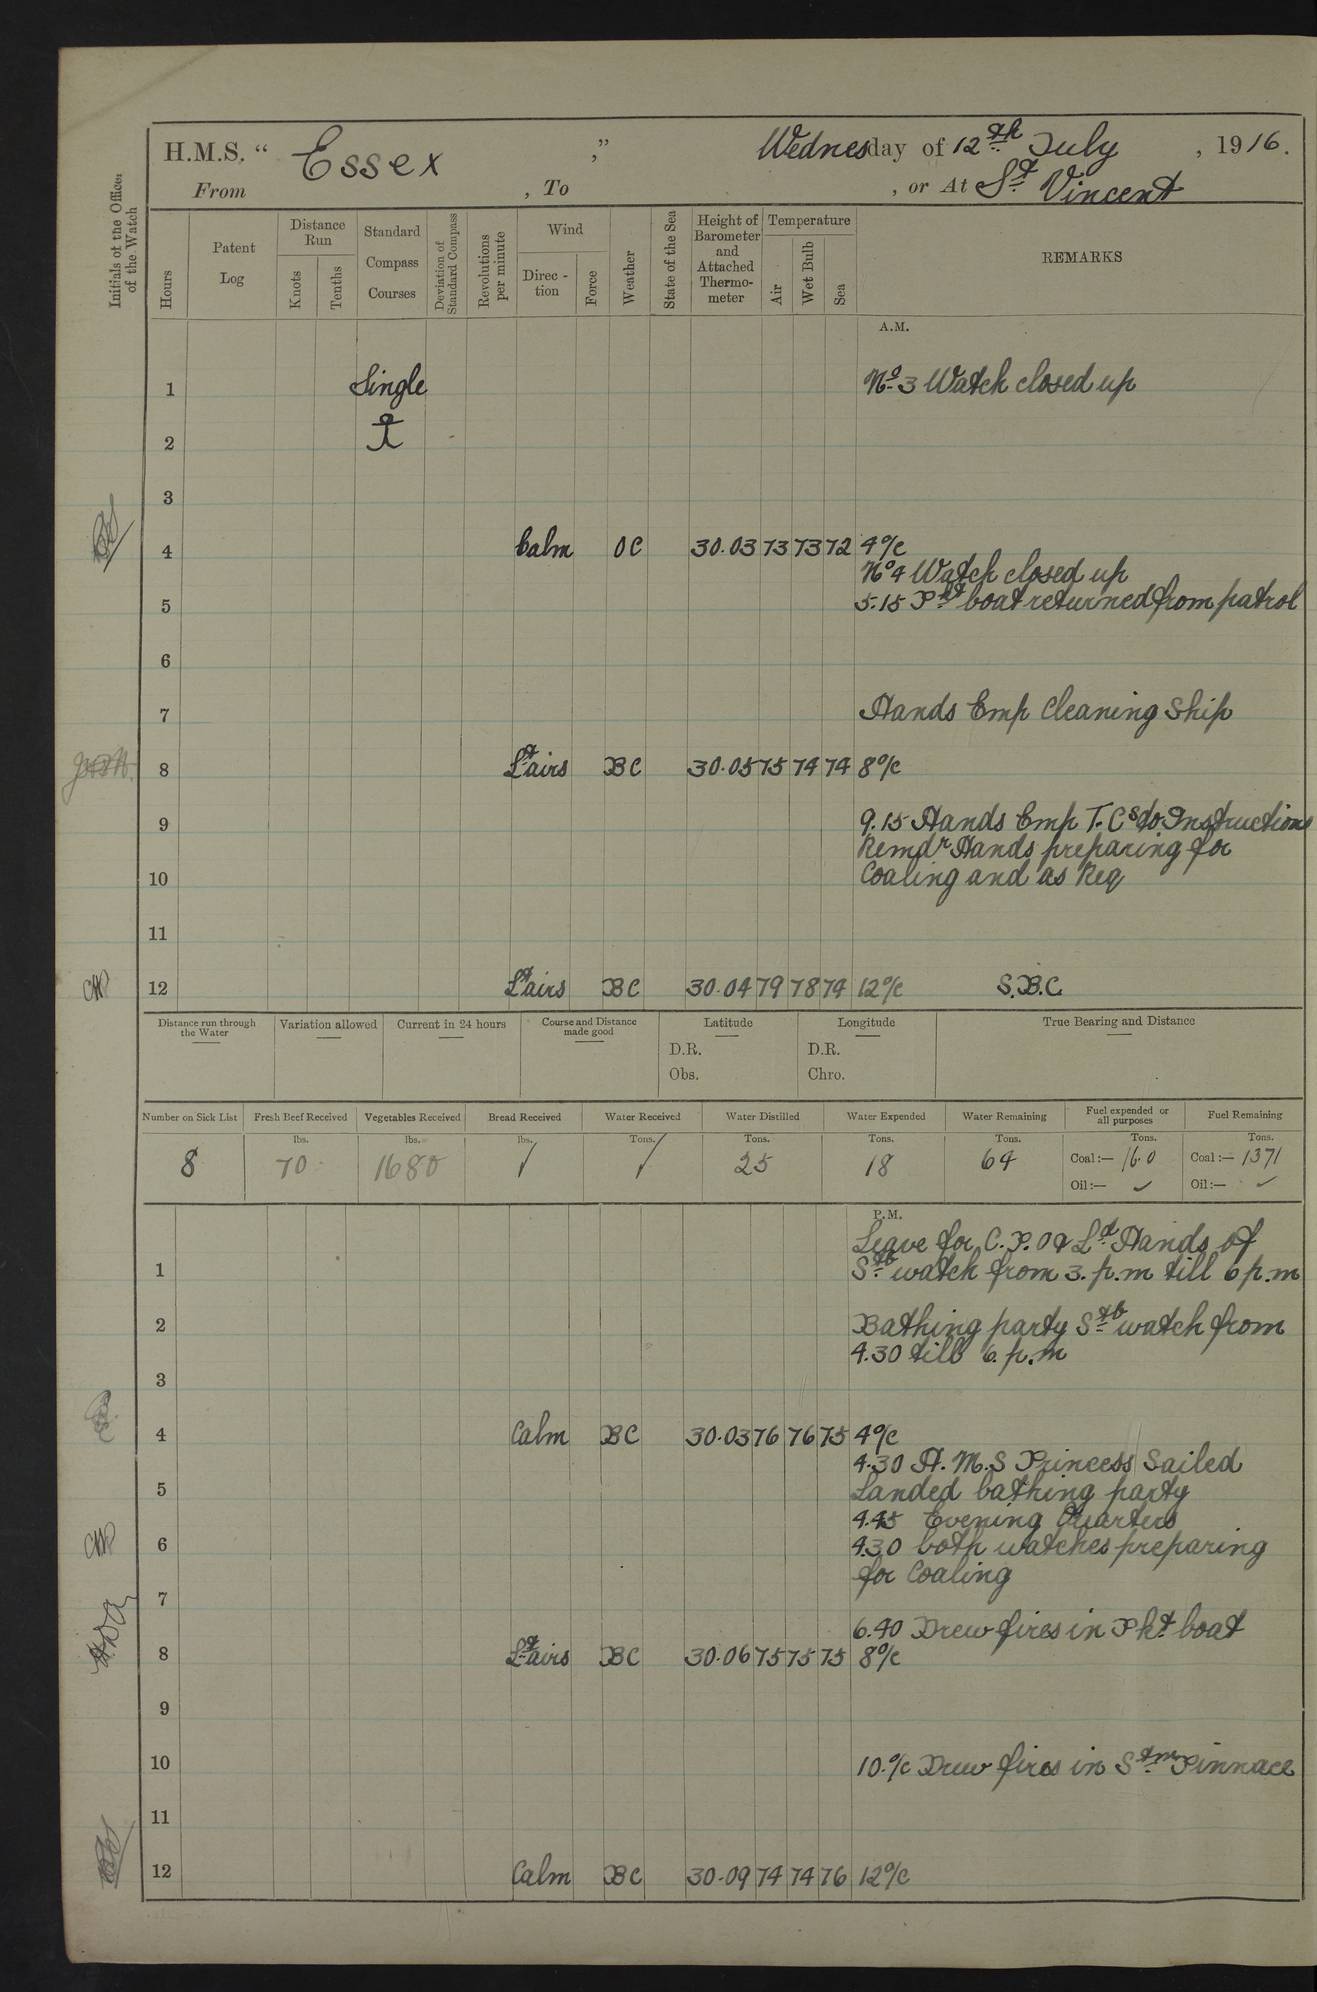 H.M.S. “ Essex ,” Wednesday of 12th July , 1916.
From , To , or At St Vincent
Initials of the Officer of the Watch
Hours
Patent Log
Distance Run
Knots
Tenths
Standard Compass Courses
Deviation of Standard Compass
Revolutions per minute
Wind
Direc-tion
Force
Weather
State of the Sea
Height of Barometer and Attached Thermo-meter
Temperature
Air
Wet Bulb
Sea
REMARKS
A.M.
1 Single No 3 Watch closed up
2
3
4 Calm OC 30.03 73 73 72 4 o/c
No 4 Watch closed up
5 5.15 Pkt boat returned from patrol
6
7 Hands Emp Cleaning Ship
8 Lt airs BC 30.05 75 74 74 8 o/c
9 9.15 Hands Emp T. Cs to Instructions
Remdr Hands preparing for
10 Coaling and as Req
11
12 Lt airs BC 30.04 79 78 74 12 o/c S.B.C.
Distance run through the Water
Variation allowed
Current in 24 hours
Course and Distance made good
Latitude
D.R.
Obs.
Longitude
D.R.
Chro.
True Bearing and Distance
Number on Sick List 8
Fresh Beef Received lbs. 70
Vegetables Received lbs. 1680
Bread Received lbs. ✓
Water Received Tons. ✓
Water Distilled Tons. 25
Water Expended Tons. 18
Water Remaining Tons. 64
Fuel expended or all purposes Tons. Coal:— 16.0 Oil:— ✓
Fuel Remaining Tons. Coal:— 1371 Oil:— ✓
P.M.
Leave for C.P.O & Ld Hands of
1 Stb watch from 3. p.m till 6 p.m
2 Bathing party Stb watch from
4.30 till 6. p.m
3
4 Calm BC 30.03 76 76 75 4 o/c
4.30 H.M.S Princess Sailed
5 Landed bathing party
4.45 Evening Quarters
6 4.30 both watches preparing
for Coaling
7
6.40 Drew fires in Pkt boat
8 Lt airs BC 30.06 75 75 75 8 o/c
9
10 10. o/c Drew fires in Stm Pinnace
11
12 Calm BC 30.09 74 74 76 12 o/c